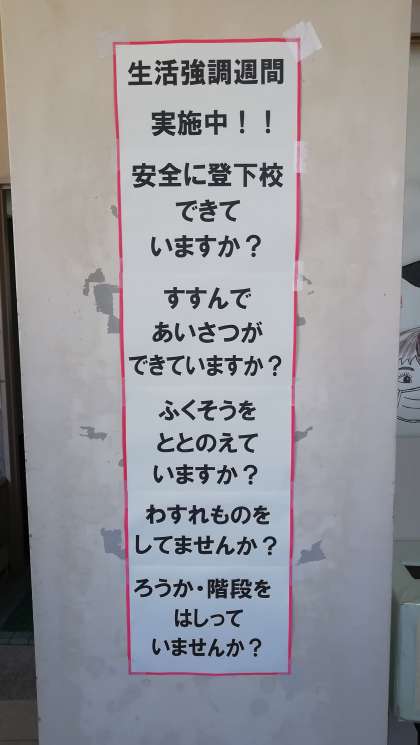 生活強調週間
実施中！！
安全に登下校
できて
いますか？
すすんで
あいさつが
できていますか？
ふくそうを
ととのえて
いますか？
わすれものを
してませんか？
ろうか・階段を
はしって
いませんか？